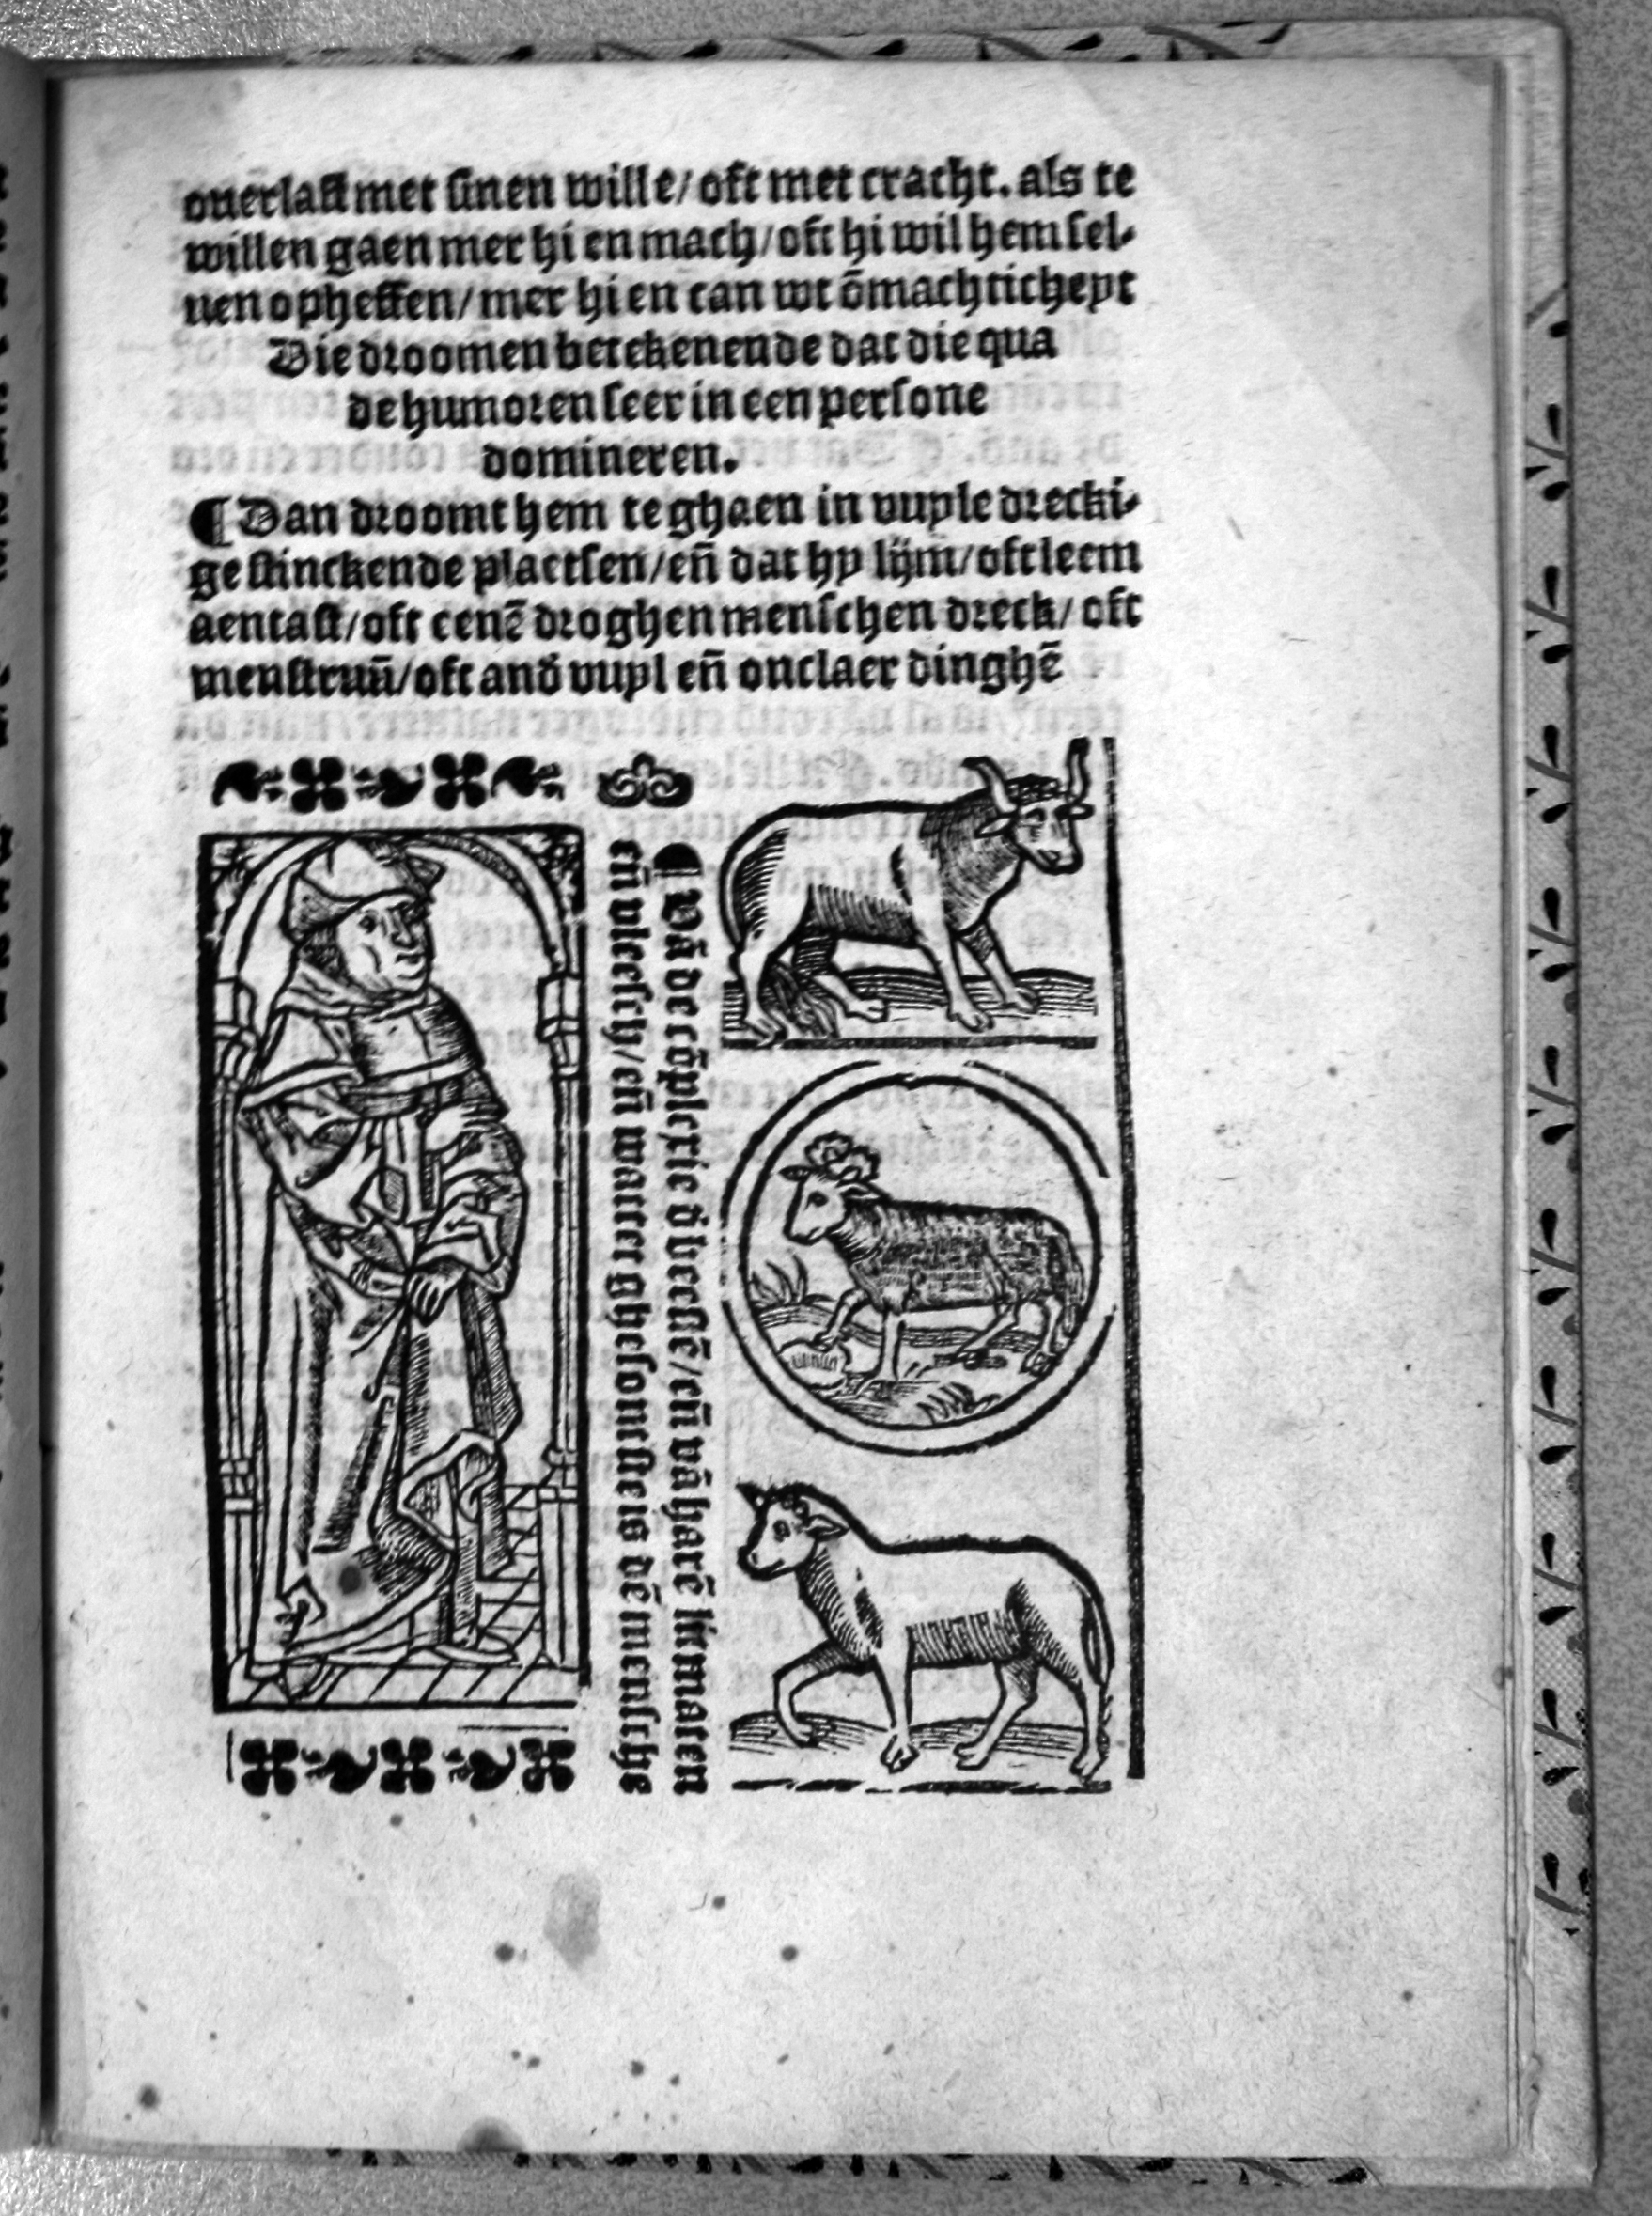 ouerlast met sinen wille/ oft met cracht. als te
willen gaen mer hi en mach/ oft hi wil hem sel-
uen opheffen/ mer hi en can wt ōmachticheyt
Die droomen betekenende dat die qua
de humoren seer in een persone
domineren.
¶ Dan droomt hem te ghaen in vuyle drecki-
ge stinckende plaetsen/ eñ dat hy lijm/ oft leem
aentast/ oft eenē droghen menschen dreck/ oft
menstruū/ oft and̄ vuyl eñ onclaer dinghē
¶ Vā de cōplexie d̄ beestē/ eñ vā harē litmaten
eñ vleesch/ eñ watter ghesontste is dē mensche